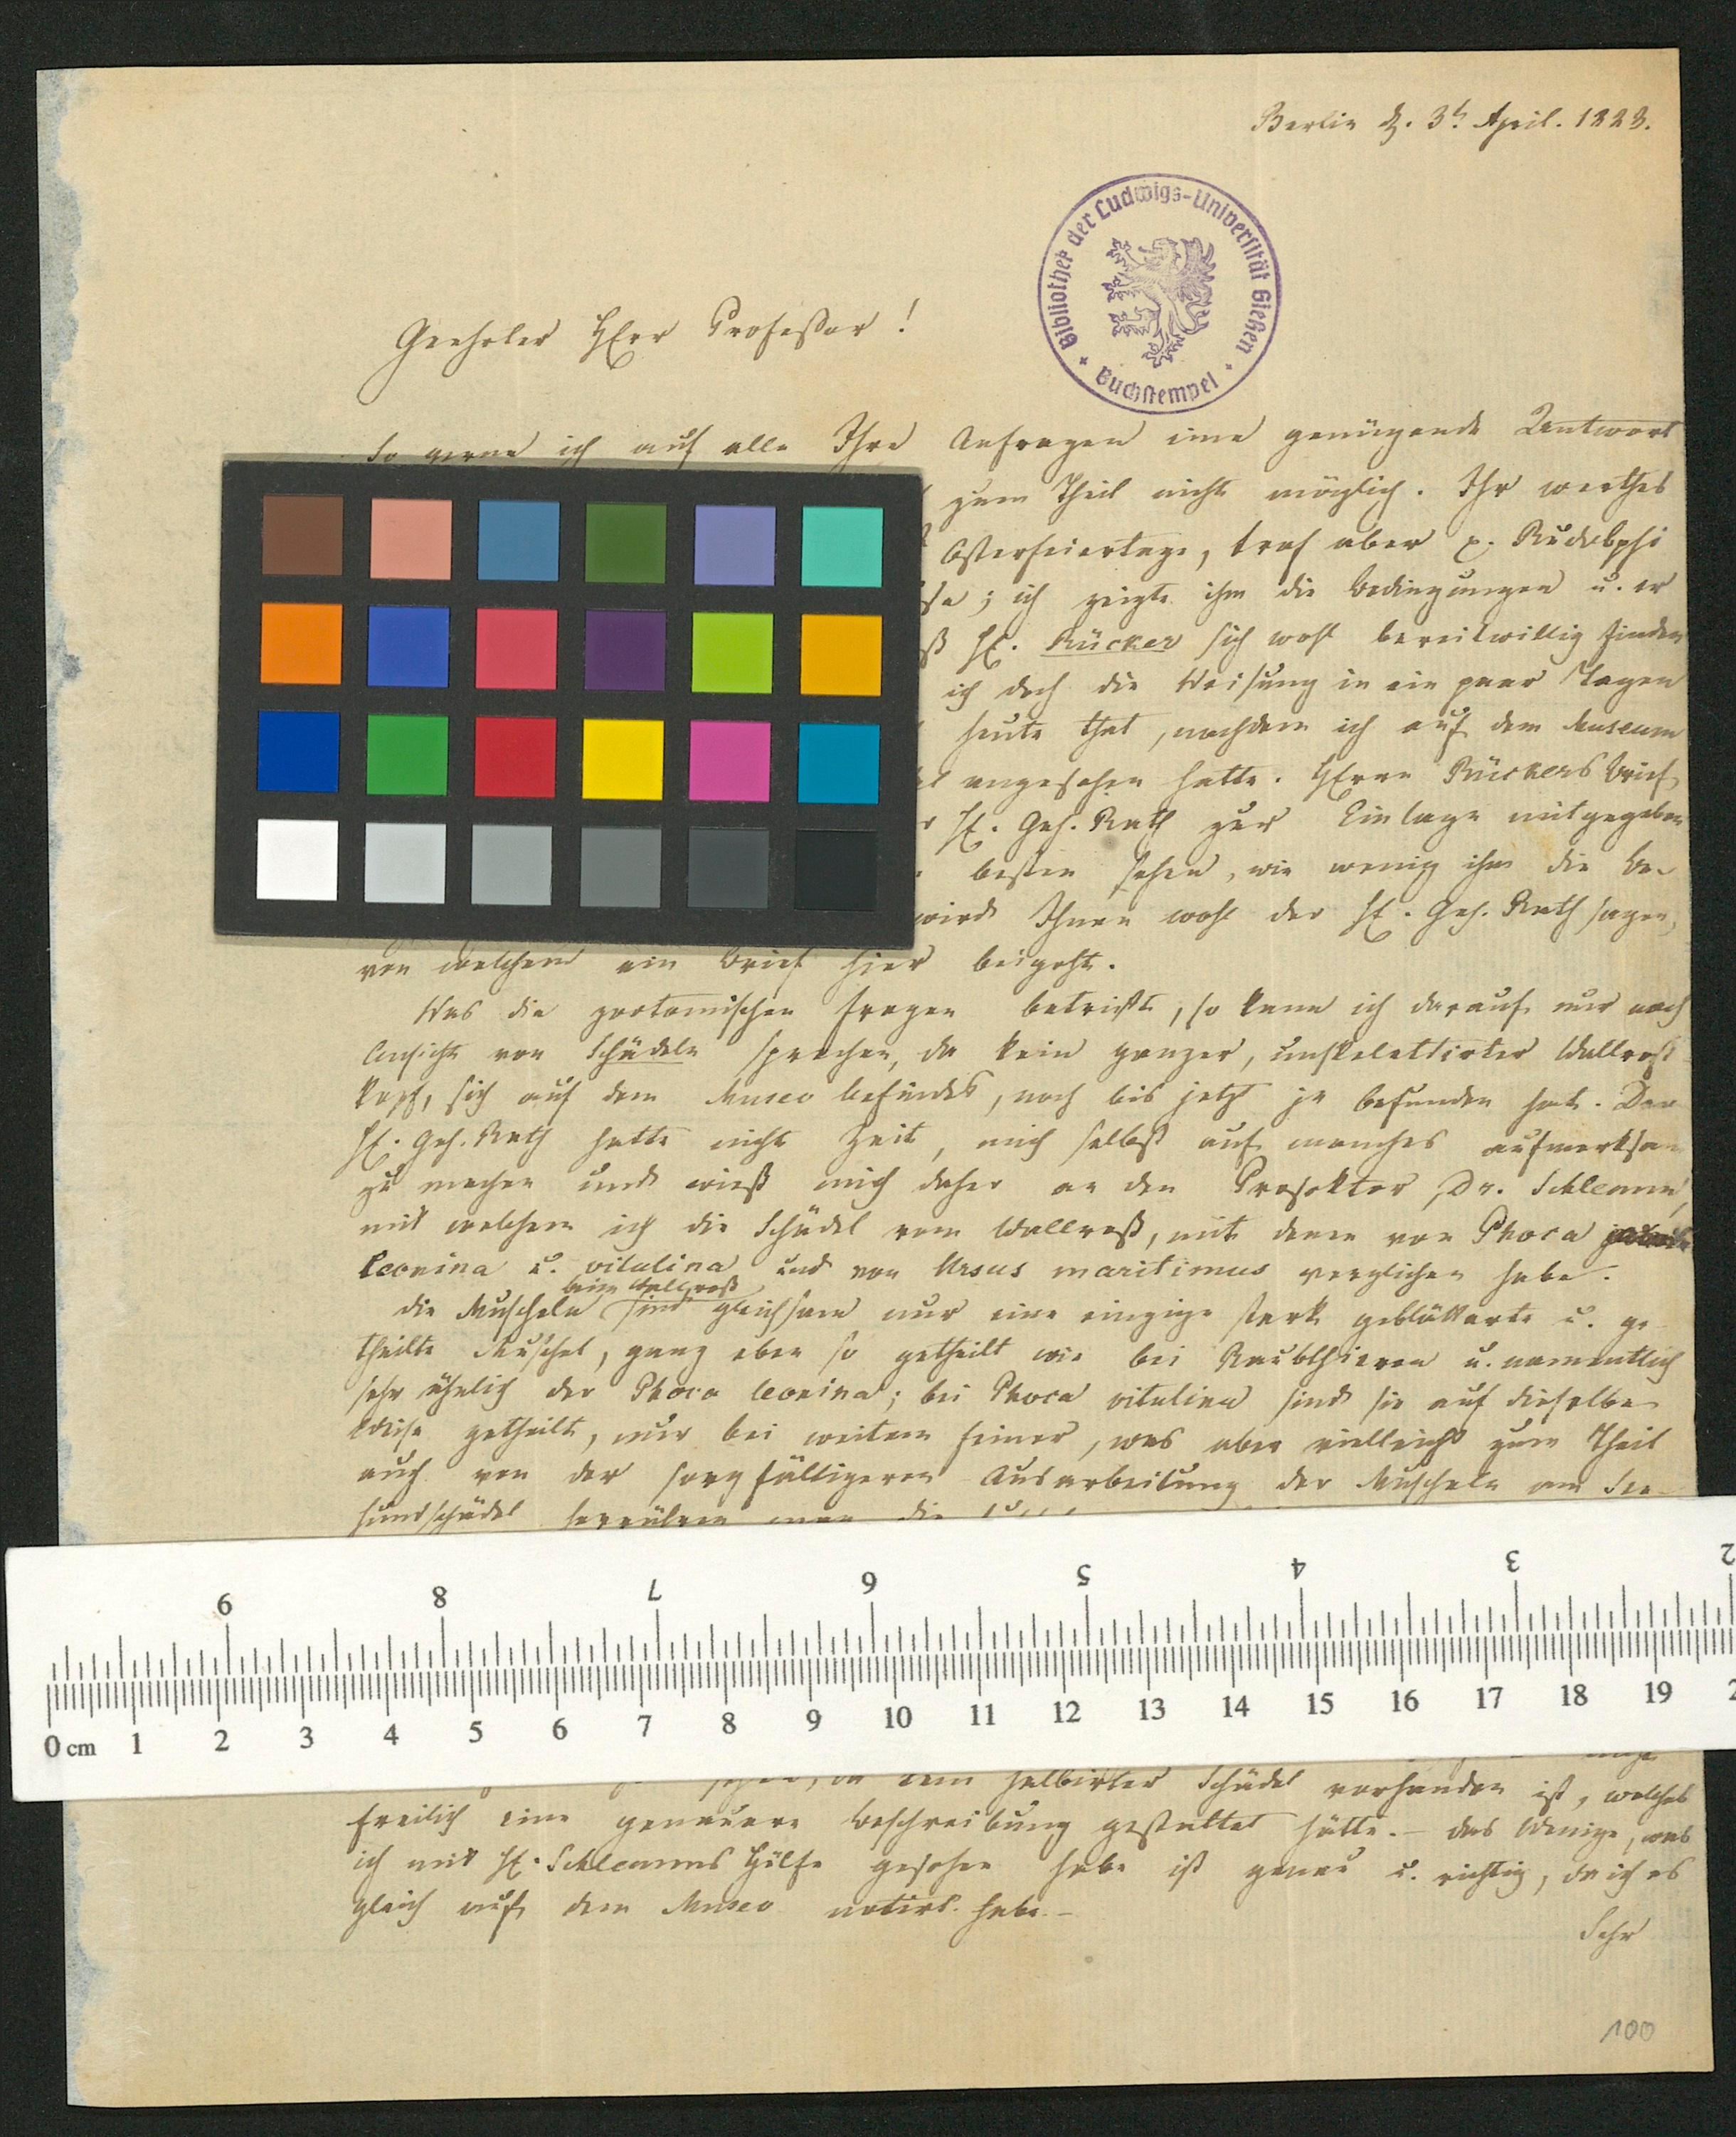 Berlin d. 3t April. 1823.
Bibliothek der Ludwigs-Universität Gießen
Buchstempel
Geehrter HErr Profeßor!
So gerne ich auf alle Ihre Anfragen eine genügende Antwort
zum Theil nicht möglich. Ihr werthes
Osterfeiertage, traf aber H. Rudolphi
ich zeigte ihm die Bedingungen u. er
H. Rücker sich wohl bereitwillig finden
ich doch die Weisung in ein paar Tagen
heute that, nachdem ich auf dem Museum
angesehen hatte. HErrn Rückers Brief
H. Geh. Rath zur Einlage mitgegeben
besten sehen, wie wenig ihm die Be-
wird Ihnen wohl der H. Geh. Rath sagen,
von welchem ein Brief hier beigeht.
Was die zootomischen Fragen betrifft, so kann ich darauf nur nach
Ansicht von Schädeln sprechen, da kein ganzer, unskelettirter Wallroß
kopf, sich auf dem Museo befindet, noch bis jetzt je befunden hat. Der
H. Geh. Rath hatte nicht Zeit, mich selbst auf manches aufmerksam
zu machen und wieß mich daher an den Prosektor, Dr. Schlemm,
mit welchem ich die Schädel vom Wallroß, mit denen von Phoca
leonina u. vitulina und von Ursus maritimus verglichen habe.
beim Wallroß
die Muscheln sind gleichsam nur eine einzige stark geblätterte u. ge
theilte Muschel, ganz eben so getheilt wie bei Raubthieren u. namentlich
sehr ähnlich der Phoca leonina; bei Phoca vitulina sind sie auf dieselbe
Weise getheilt, nur bei weitem feiner, was aber vielleicht zum Theil
auch von der sorgfältigeren Ausarbeitung der Muscheln am See-
hundschädel herrühren die
0 cm 1 2 3 4 5 6 7 8 9 10 11 12 13 14 15 16 17 18 19
9 8 7 6 5 4 3 2
halbirter Schädel vorhanden ist, welches
freilich eine genauere Beschreibung gestattet hätte. – Das Wenige, was
ich mit H. Schlemms Hülfe gesehen habe ist genau u. richtig, da ich es
gleich auf dem Museo notirt habe. –
Sehr
100